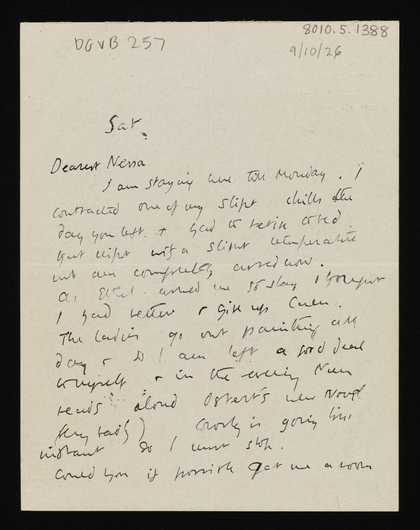 DGVB 257
8010.5.1388
9/10/26
Sat.
Dearest Nessa
I am staying here till Monday. I
contracted one of my slight chills the
day you left. & had to retire to bed
that night with a slight temperature
but am completely cured now.
As Ethel asked me to stay I thought
I had better & give up Caen.
The ladies go out painting all
day & so I am left a good deal
to myself & in the evening Nan
reads aloud Osbert's new Novel
(very bad!) is going this
instant so I must stop.
Could you if possible get me a room